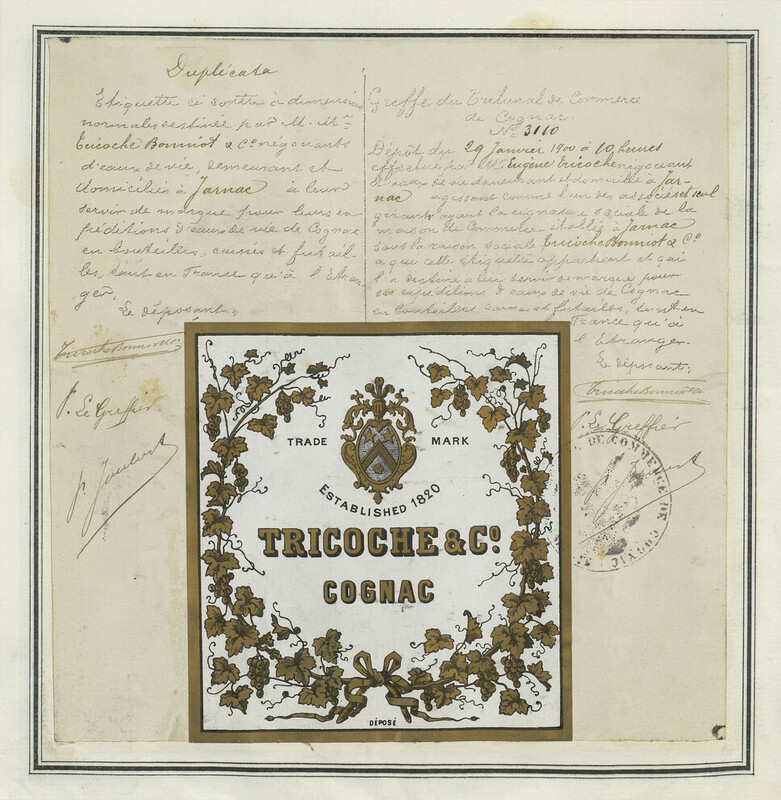 Duplicata
Etiquette ci contre à dimension
normales destinée par M. M.rs
Tricoche Bonniot & Co négociants
d'eaux de vie, demeurant et
domiciliés à Jarnac à leur
servir de marque pour leurs ex-
péditions d'eaux de vie de Cognac
en bouteilles, caisses et futail-
les, tant en France qu'à l'étran-
ger.
Le déposant:
Tricoche Bonniot & Co
P. Le Greffier
Greffe du Tribunal de Commerce
de Cognac
No 3110
Dépôt du 29 Janvier 1900 à 10 heures
effectué par Mr Eugène Tricoche négociant
d'eaux de vie demeurant et domicilié à Jar-
nac agissant comme l'un des associés et seul
gérant ayant la signature sociale de la
maison de Commerce établie à Jarnac
sous la raison sociale Tricoche Bonniot & Co
a que cette étiquette appartient et qu'il
l'a destine à lui servir de marque pour
ses expéditions d'eaux de vie de Cognac
en bouteilles, caisses et futailles, tant en
France qu'à
l'étranger.
Le déposant:
Tricoche Bonniot & Co
P. Le Greffier
DE COMMERCE DE COGNAC
TRADE MARK
ESTABLISHED 1820
TRICOCHE & Co.
COGNAC
DÉPOSÉ